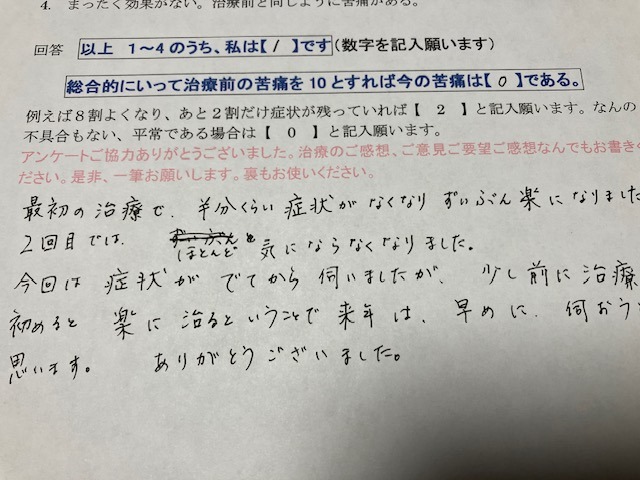 4. まったく効果がない。治療前と同じように苦痛がある。
回答 以上 1～4のうち、私は【 1 】です(数字を記入願います)
総合的にいって治療前の苦痛を10とすれば今の苦痛は【 0 】である。
例えば８割よくなり、あと２割だけ症状が残っていれば【 ２ 】と記入願います。なんの
不具合もない、平常である場合は【 ０ 】と記入願います。
アンケートご協力ありがとうございました。治療のご感想、ご意見ご要望ご感想なんでもお書きく
ださい。是非、一筆お願いします。裏もお使いください。
最初の治療で、半分くらい症状がなくなりずいぶん楽になりました
2回目では、ほとんど気にならなくなりました。
今回は症状がでてから伺いましたが、少し前に治療
初めると楽に治るということで来年は、早めに、伺おうと
思います。 ありがとうございました。